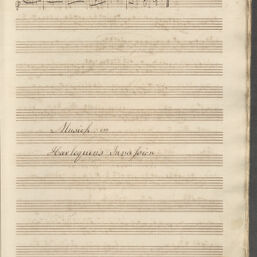 Musick in
Harlequens Invasion